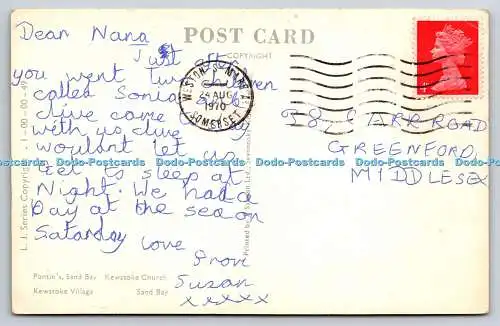 Dear Nana
Just after
you went two children
called Sonia &
clive came to stay
with us, clive
wouldnt let us
get to sleep at
Night. We had a
Day at the sea on
Saturday love
from
Susan
xxxxx
POST CARD
COPYRIGHT
WESTON-S-MARE
24 AUG
1970
SOMERSET
4D
CARR ROAD
GREENFORD,
MIDDLESEX
Pontin's, Sand Bay Kewstoke Church
Kewstoke Village Sand Bay
L.J. Series Copyright
Dodo-Postcards Dodo-Postcards Dodo-Postcards Dodo-Postcards Dodo-Postcards